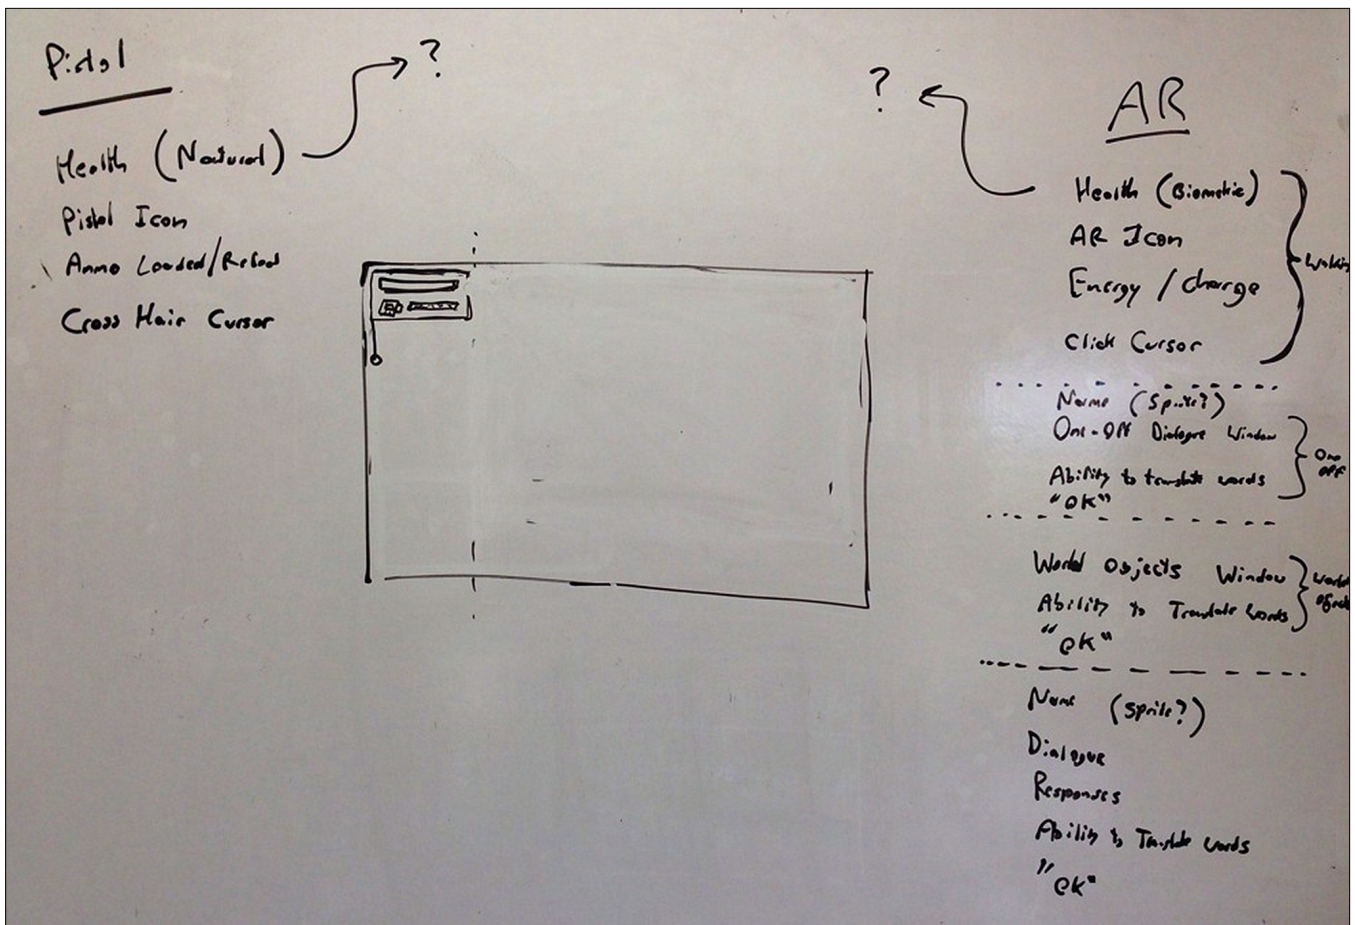 Pistol
?
Health (Natural)
Pistol Icon
Ammo Loaded/Reload
Cross Hair Cursor
?
AR
Health (Biometric)
AR Icon
Energy / Charge
Click Cursor
Walking
Name (Sprite?)
One-Off Dialogue Window
Ability to translate words
"OK"
One off
World Objects Window
Ability to Translate words
"OK"
World Objects
Name (Sprite?)
Dialogue
Responses
Ability to Translate words
"OK"